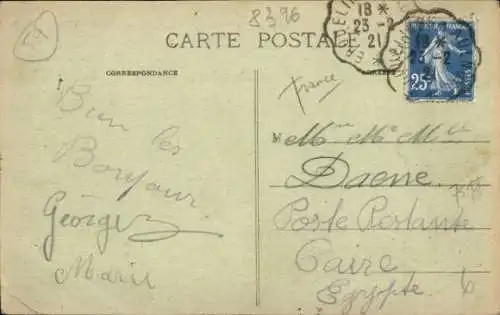 8396
59
CARTE POSTALE
18 *
23 - 2
21
CORRESPONDANCE
France
25c
Bien les
Bonjour
Georges
Marie
Mme Mr Mlle
Daene
Poste Restante
Caire
Egypte